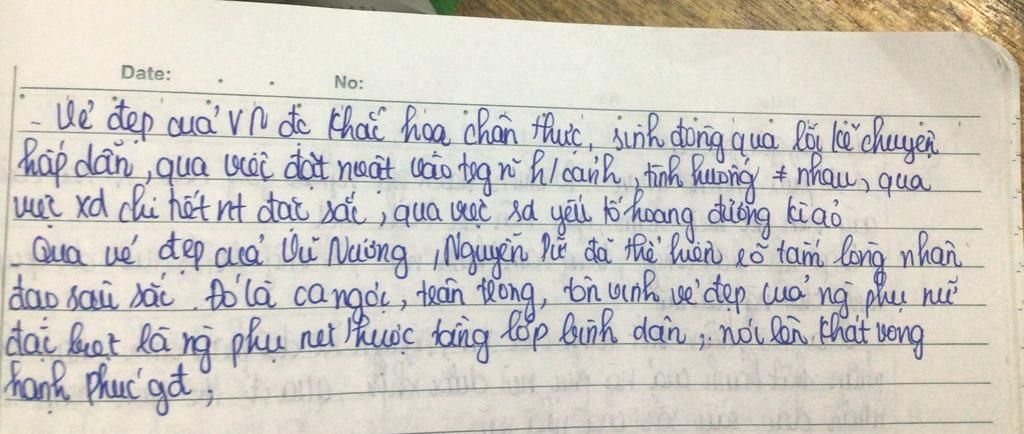 Date: . . No:
- Vẻ đẹp của VN đc khắc họa chân thực, sinh động qua lối kể chuyện
hấp dẫn, qua việc đặt nvật vào tog n` h/cảnh, tình huống ≠ nhau, qua
việc xd chi tiết nt đặc sắc, qua việc sd yếu tố hoang đường kì ảo
- Qua vẻ đẹp của Vũ Nương, Nguyễn Dữ đã thể hiện rõ tấm lòng nhân
đạo sâu sắc. Đó là ca ngợi, trân trọng, tôn vinh vẻ đẹp của ng phụ nữ
đặc biệt là ng phụ nữ thuộc tầng lớp bình dân, nói lên khát vọng
hạnh phúc gđ,